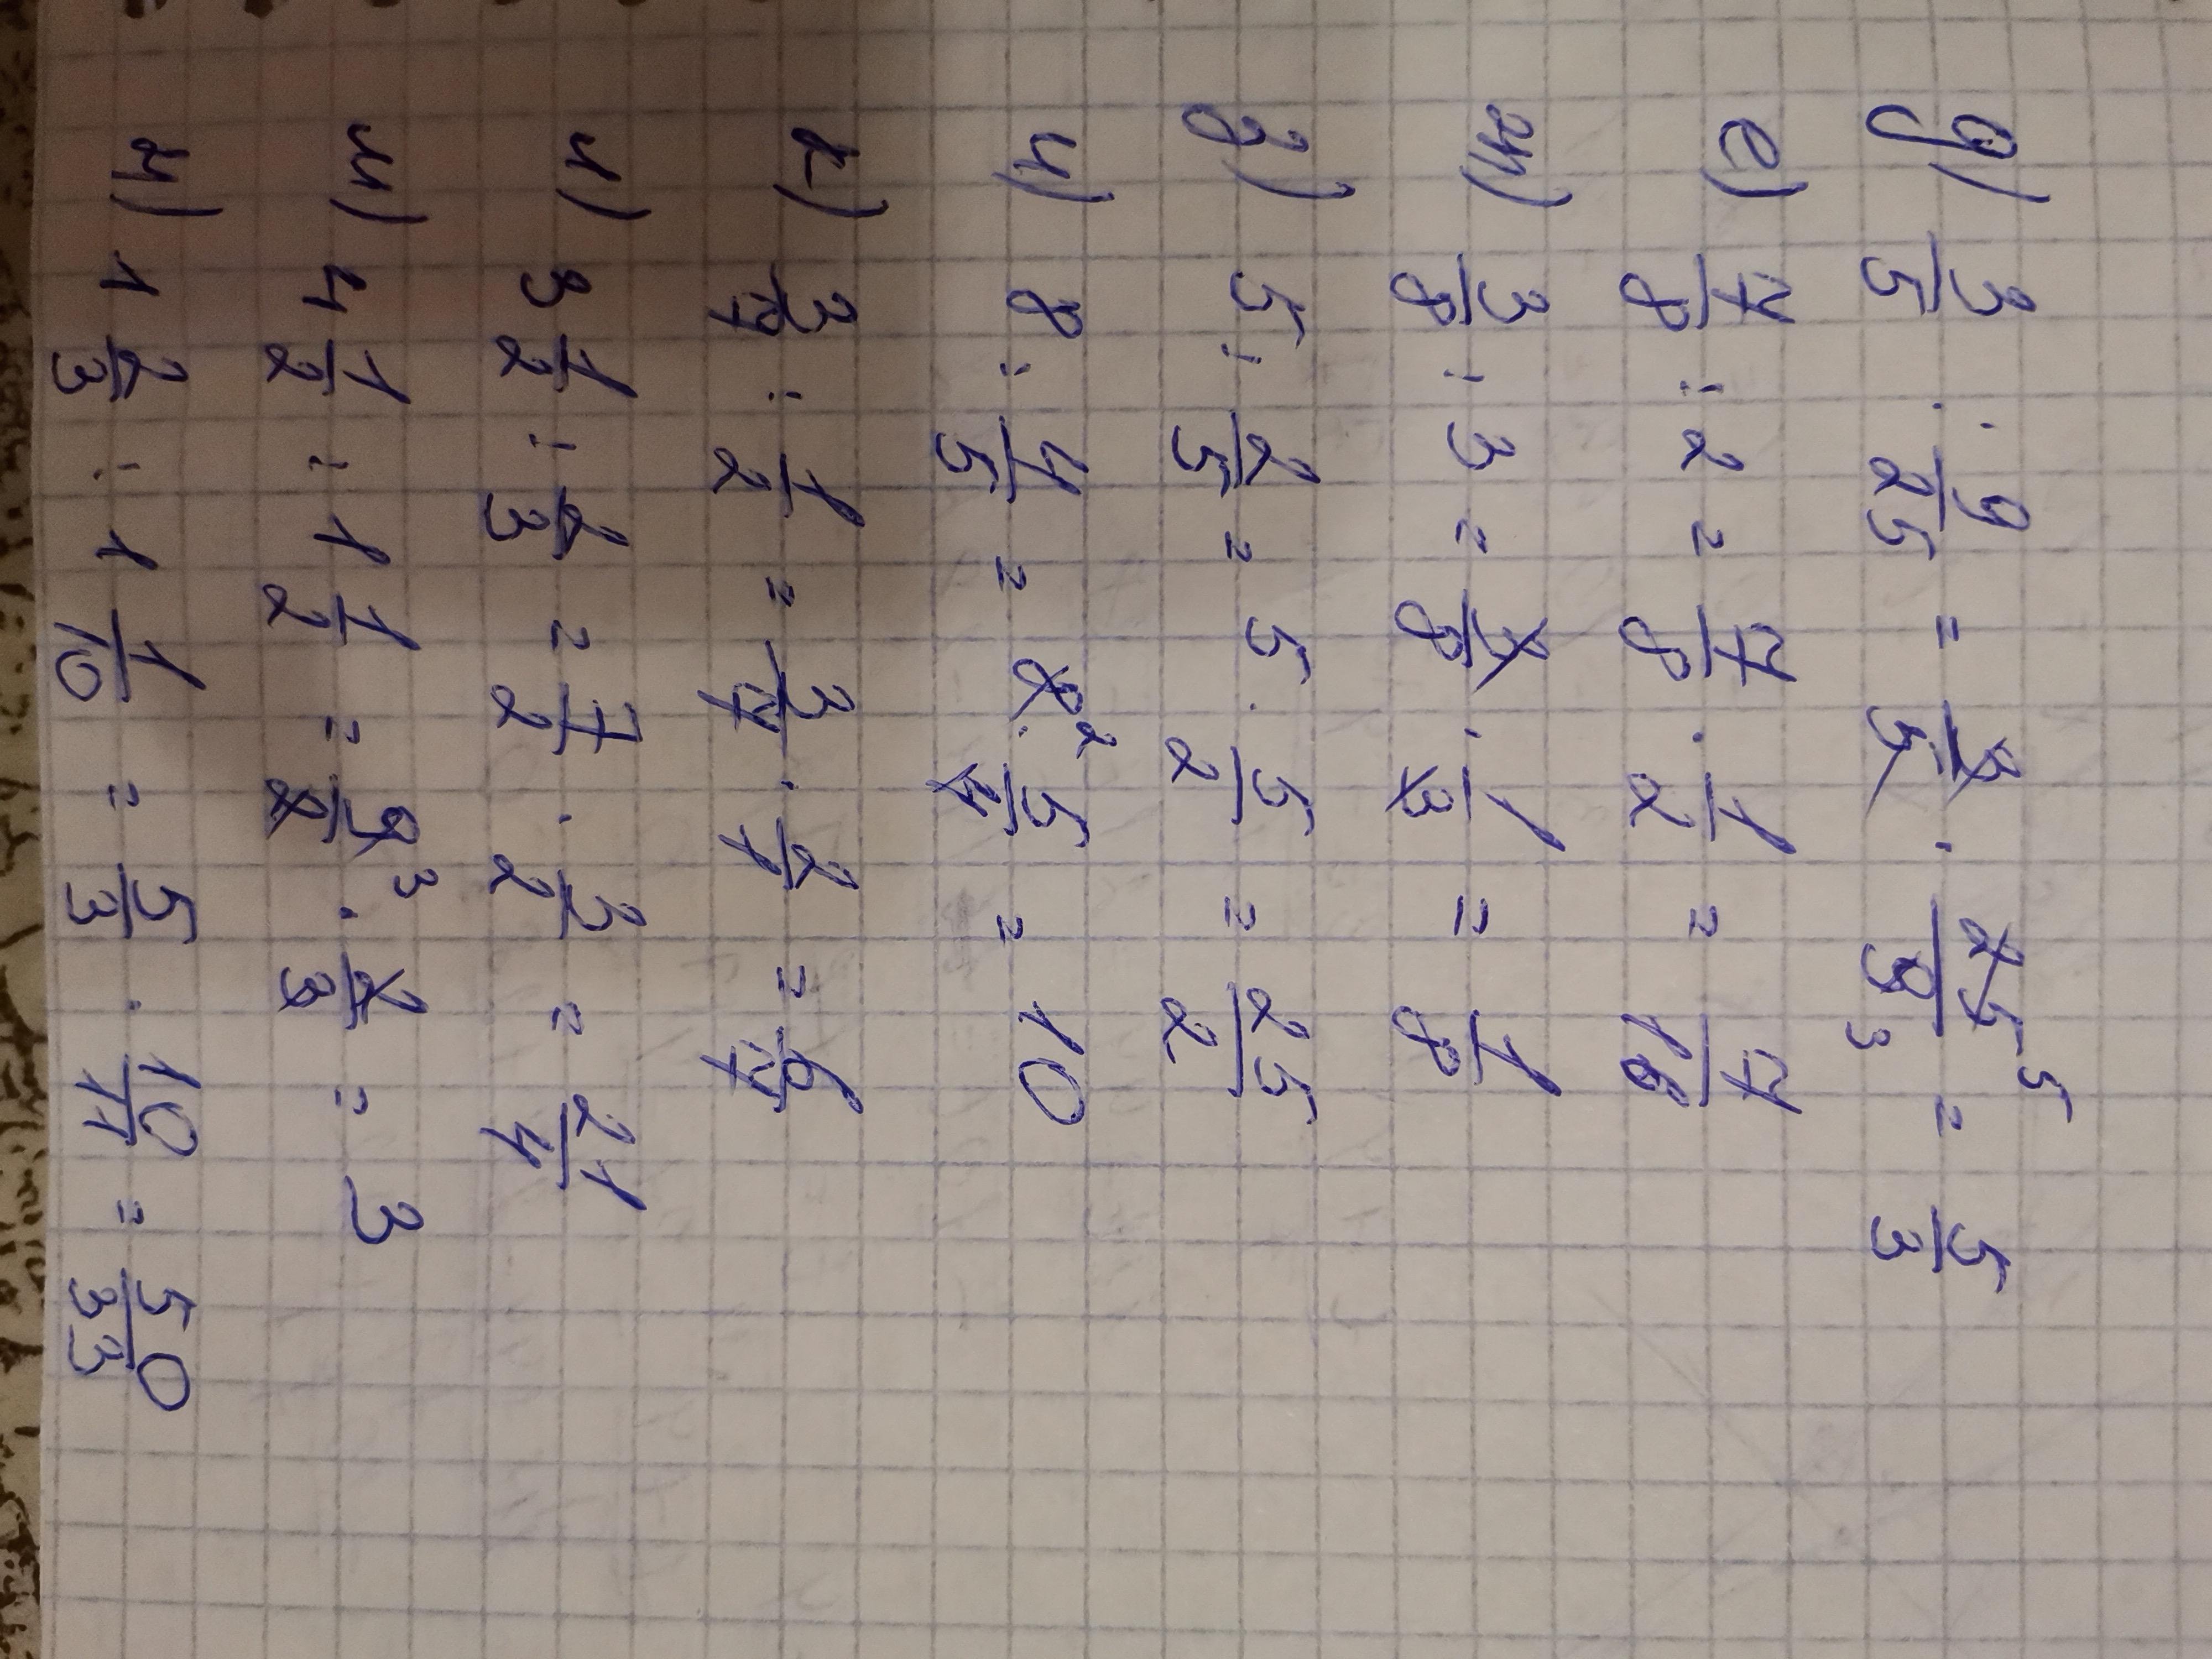 д) 3/5 : 9/25 = 3/5 · 25/9 5 3 = 5/3
е) 7/8 : 2 = 7/8 · 1/2 = 7/16
ж) 3/8 : 3 = 3/8 · 1/3 = 1/8
з) 5 : 2/5 = 5 · 5/2 = 25/2
и) 8 : 4/5 = 8 2 · 5/4 = 10
к) 3/7 : 1/2 = 3/7 · 2/1 = 6/7
л) 3 1/2 : 2/3 = 7/2 · 3/2 = 21/4
м) 4 1/2 : 1 1/2 = 9/2 3 · 2/3 = 3
н) 1 2/3 : 1 1/10 = 5/3 · 10/11 = 50/33